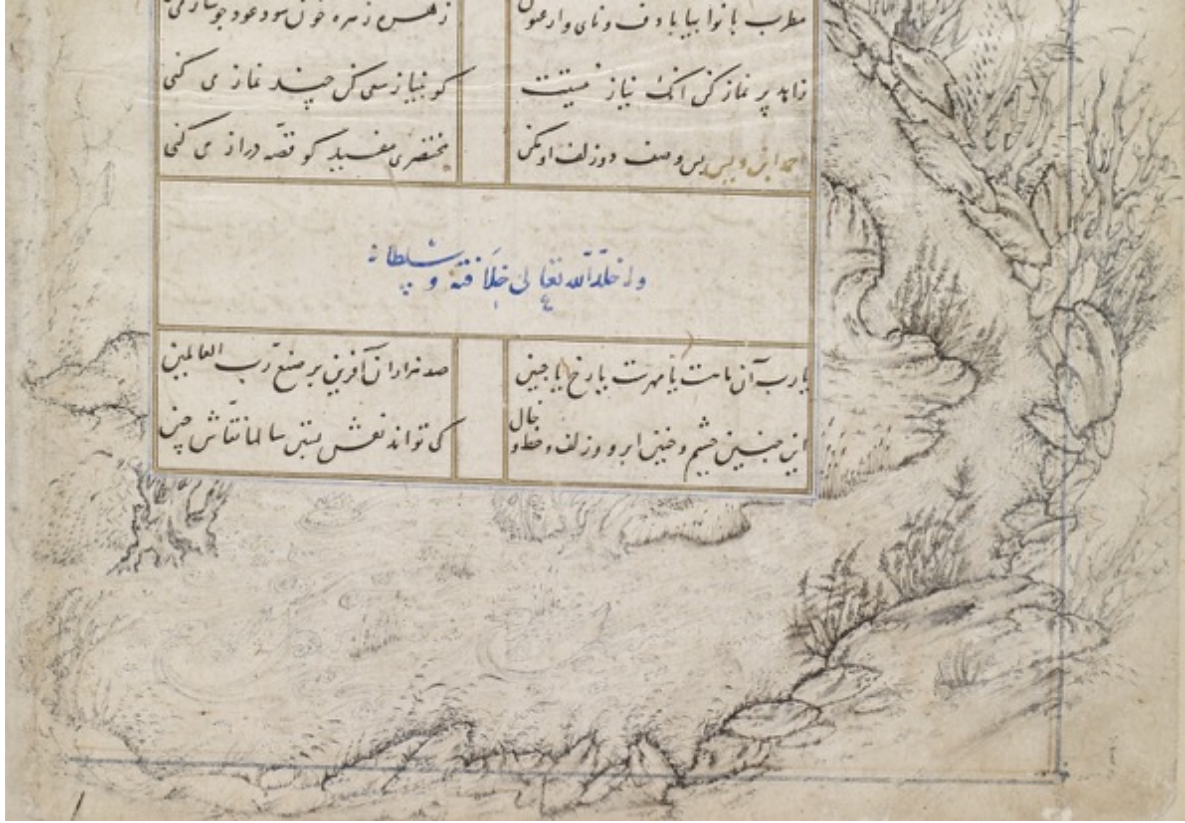 مطرب با نوا بیا با دف و نای وارغنون
زاهد پر نماز کن انک نیاز نیستت کو بنیاز سعی کن چند نماز می کنی
احمد ابن ویس بس وصف دو زلف او مکن مختصری مفید کو قصّه دراز می کنی
وله خلّد الله تعالی خلافته و سلطانه
یارب آن ماهست یا مهرست یا رخ یا جبین صد هزاران آفرین بر صنع ربّ العالمین
این چنین چشم و چنین ابرو و زلف و خط و خال کی تواند نقش بستن سالها نقّاش چین